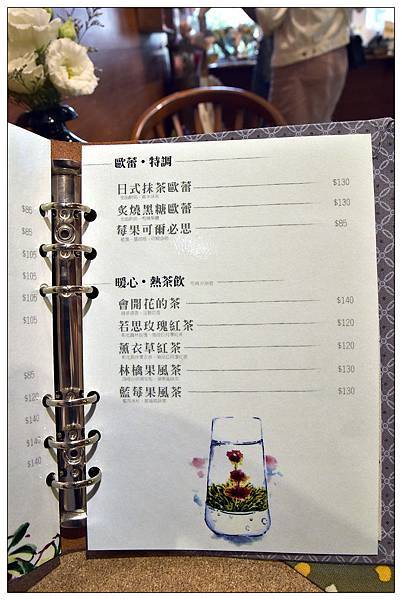 $85
$85
$105
$105
$105
$85
$120
$140
$140
歐蕾・特調
日式抹茶歐蕾 $130
炙燒黑糖歐蕾 $130
莓果可爾必思 $85
暖心・熱茶飲
會開花的茶 $140
若思玫瑰紅茶 $120
薰衣草紅茶 $120
林檎果風茶 $130
藍莓果風茶 $130